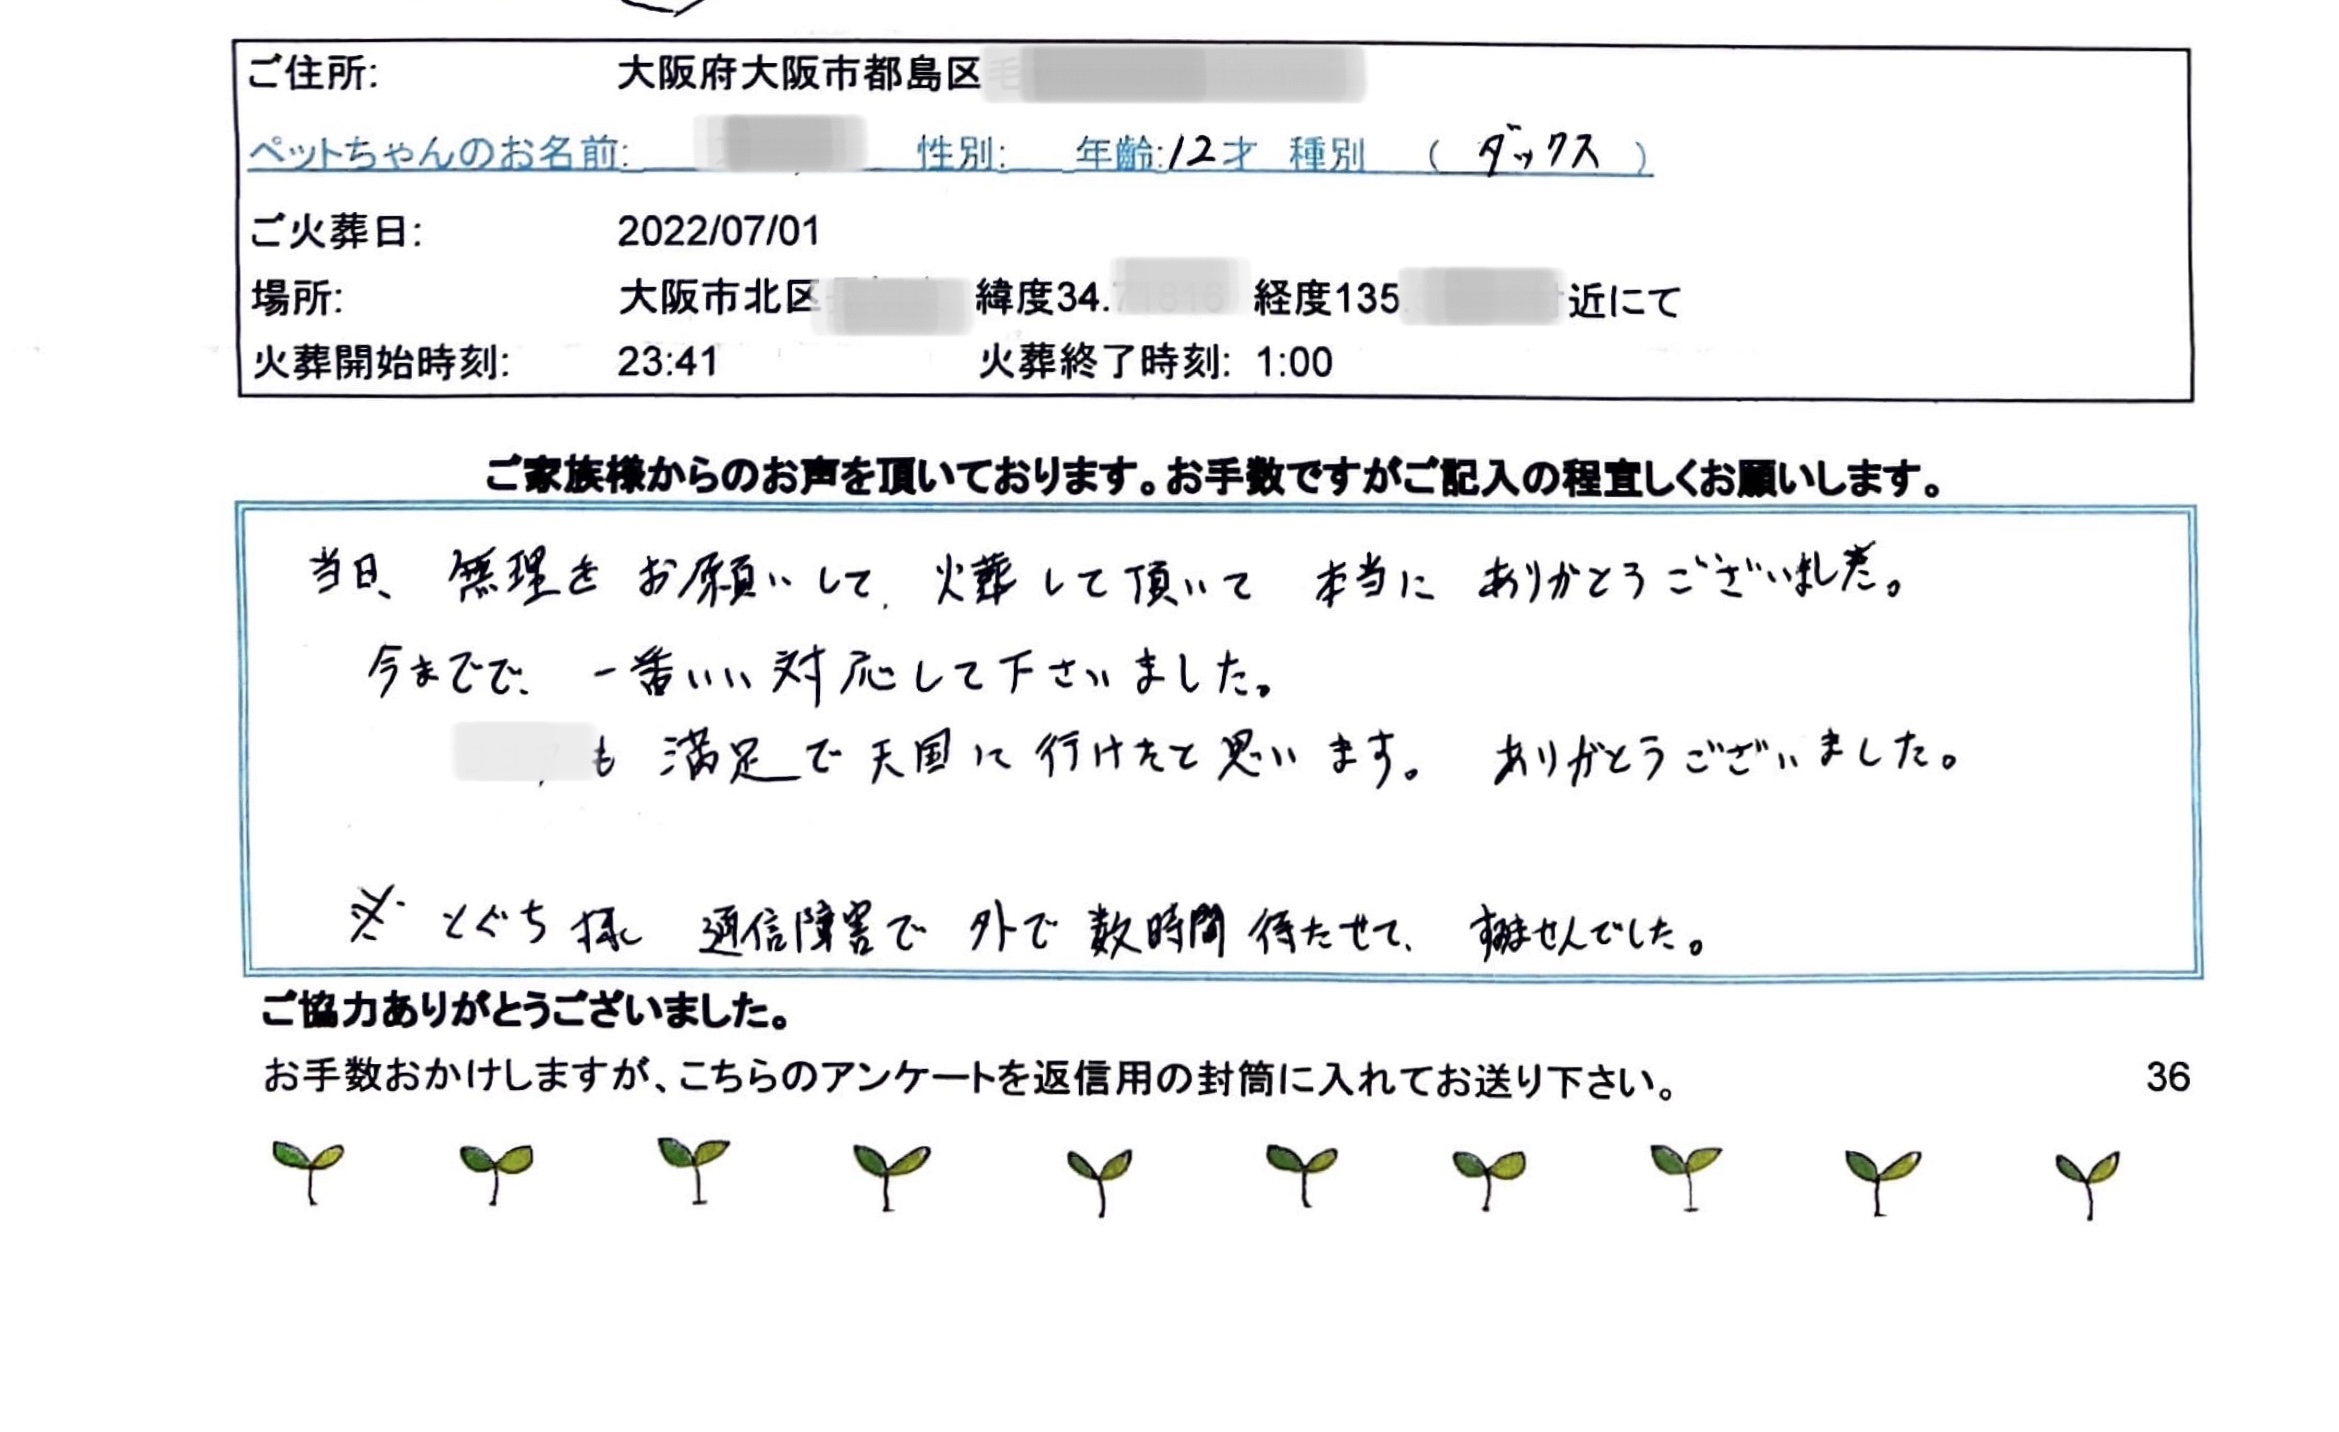 ご住所: 大阪府大阪市都島区
ペットちゃんのお名前: 性別: 年齢:12才 種別 ( ダックス )
ご火葬日: 2022/07/01
場所: 大阪市北区 緯度34. 経度135 近にて
火葬開始時刻: 23:41 火葬終了時刻: 1:00
ご家族様からのお声を頂いております。お手数ですがご記入の程宜しくお願いします。
当日、無理をお願いして、火葬して頂いて 本当に ありがとうございました。
今までで、一番いい対応して下さいました。
も 満足で天国に行けたと思います。 ありがとうございました。
※ とぐち様 通信障害で 外で 数時間 待たせて、 すみませんでした。
ご協力ありがとうございました。
お手数おかけしますが、こちらのアンケートを返信用の封筒に入れてお送り下さい。 36